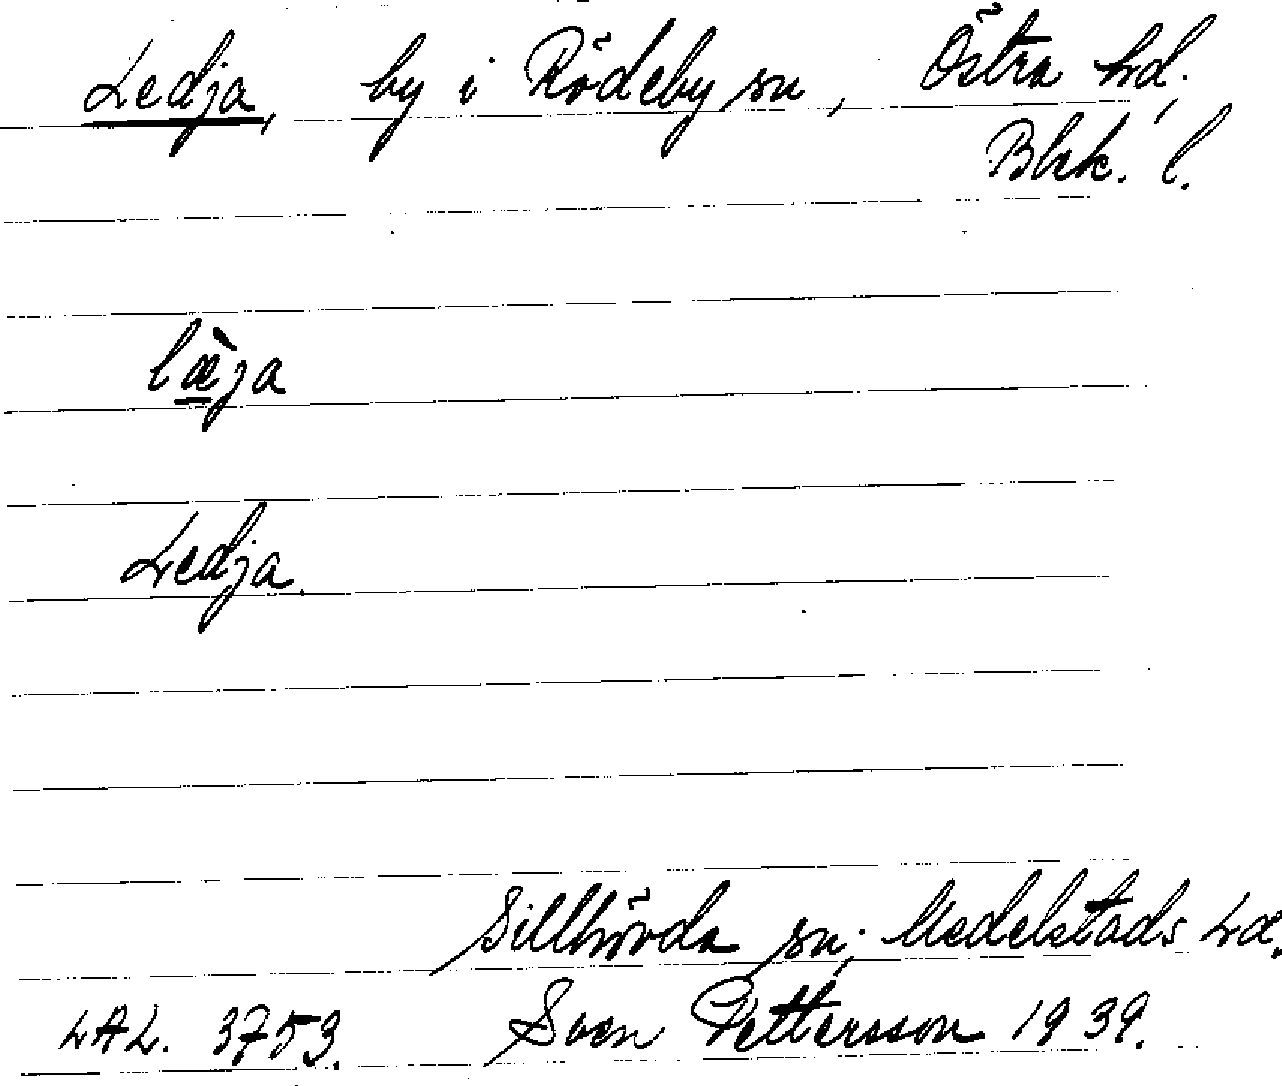 Ledja, by i Rödeby sn, Östra hd.
Blek. l.
læ̀ja
Ledja.
Sillhövda sn; Medelstads hd.
LAL. 3753. Sven Pettersson 1939.